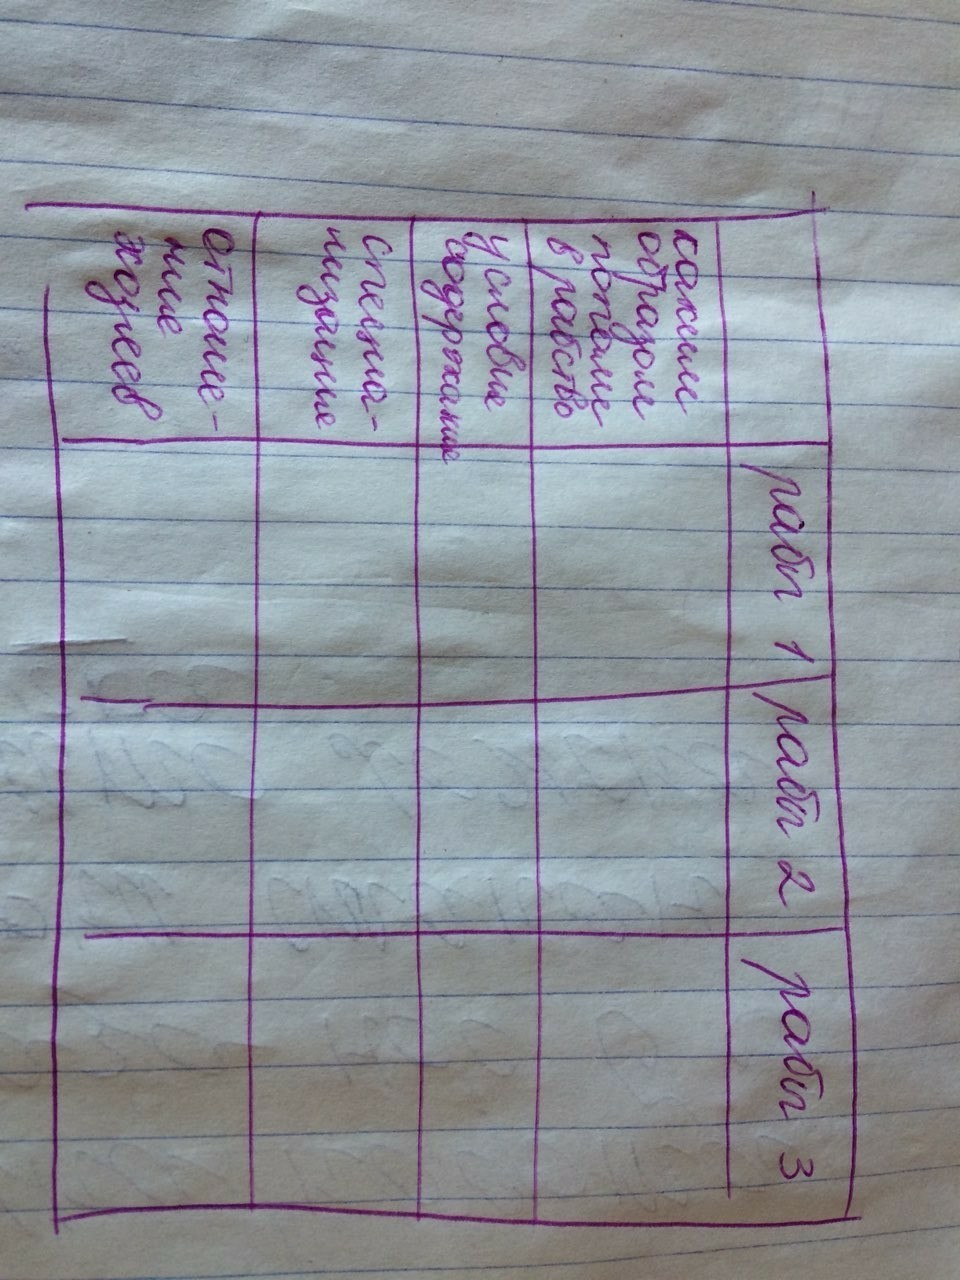 рабы 1 рабы 2 рабы 3
каким
образом
попали
в рабство
условие
содержание
специа-
лизация
отноше-
ние
хозяев